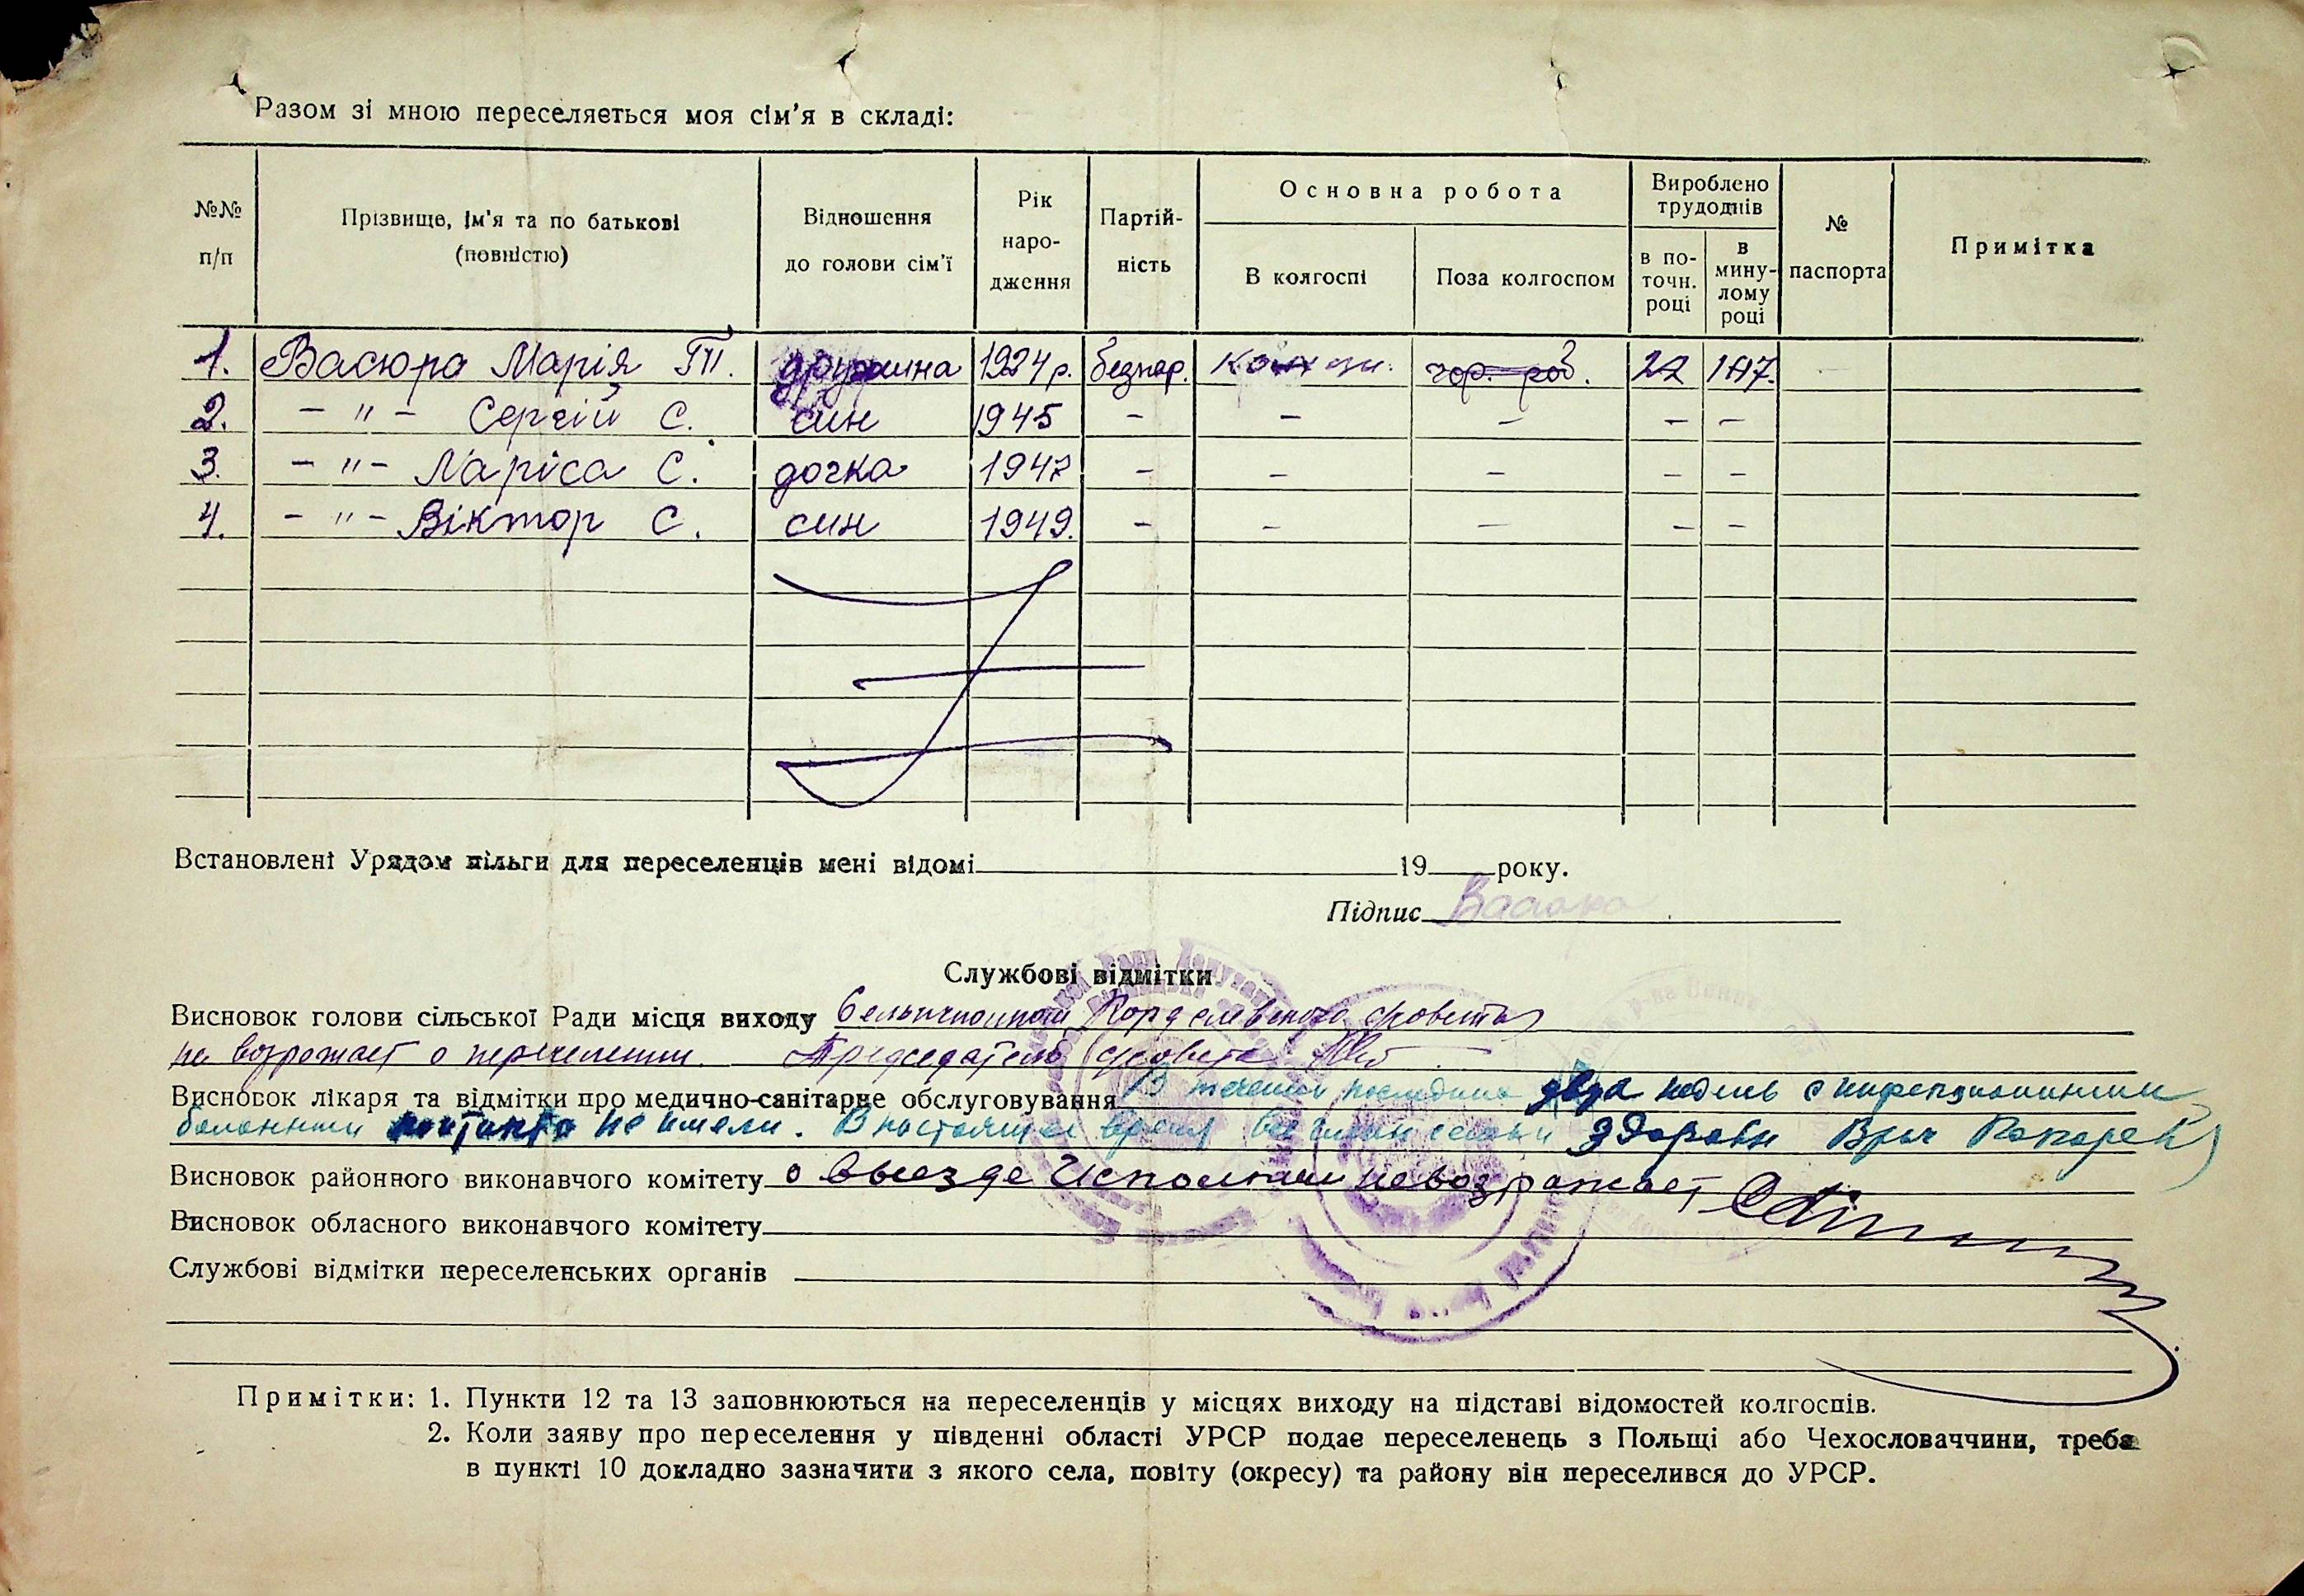 Разом зі мною переселяється моя сім'я в складі:
№№ п/п
Прізвище, ім'я та по батькові (повністю)
Відношення до голови сім'ї
Рік народження
Партійність
Основна робота
В колгоспі
Поза колгоспом
Вироблено трудоднів
в поточн. році
в минулому році
№ паспорта
Примітка
1. Васюра Марія дружина 1924 р. безпар. чор. роб. 22
2. – " – Сергій С. син 1945 – – – – –
3. – " – Лариса С. дочка 1947 – – – – –
4. – " – Віктор С. син 1949. – – – – –
Встановлені Урядом пільги для переселенців мені відомі 19 року.
Підпис
Службові відмітки
Висновок голови сільської Ради місця виходу
не возражает о переселении. Председатель с/совета
Висновок лікаря та відмітки про медично-санітарне обслуговування В течении последних двух недель с инфекционними
больными контакта не имели. В настоящее время все члены семьи здоровы Врач
Висновок районного виконавчого комітету о выезде Исполком невозражает
Висновок обласного виконавчого комітету
Службові відмітки переселенських органів
Примітки: 1. Пункти 12 та 13 заповнюються на переселенців у місцях виходу на підставі відомостей колгоспів.
2. Коли заяву про переселення у південні області УРСР подає переселенець з Польщі або Чехословаччини, треба
в пункті 10 докладно зазначити з якого села, повіту (окресу) та району він переселився до УРСР.